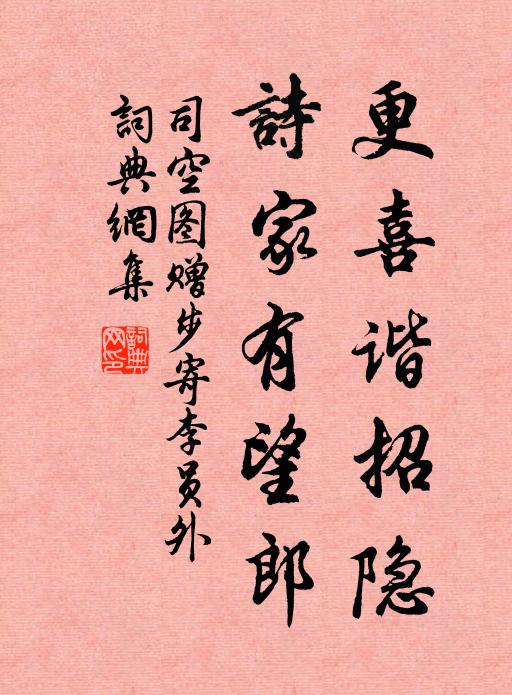 更喜谐招隐
詩家有望郎
司空图赠步寄李员外
詞典網集
詞典网印